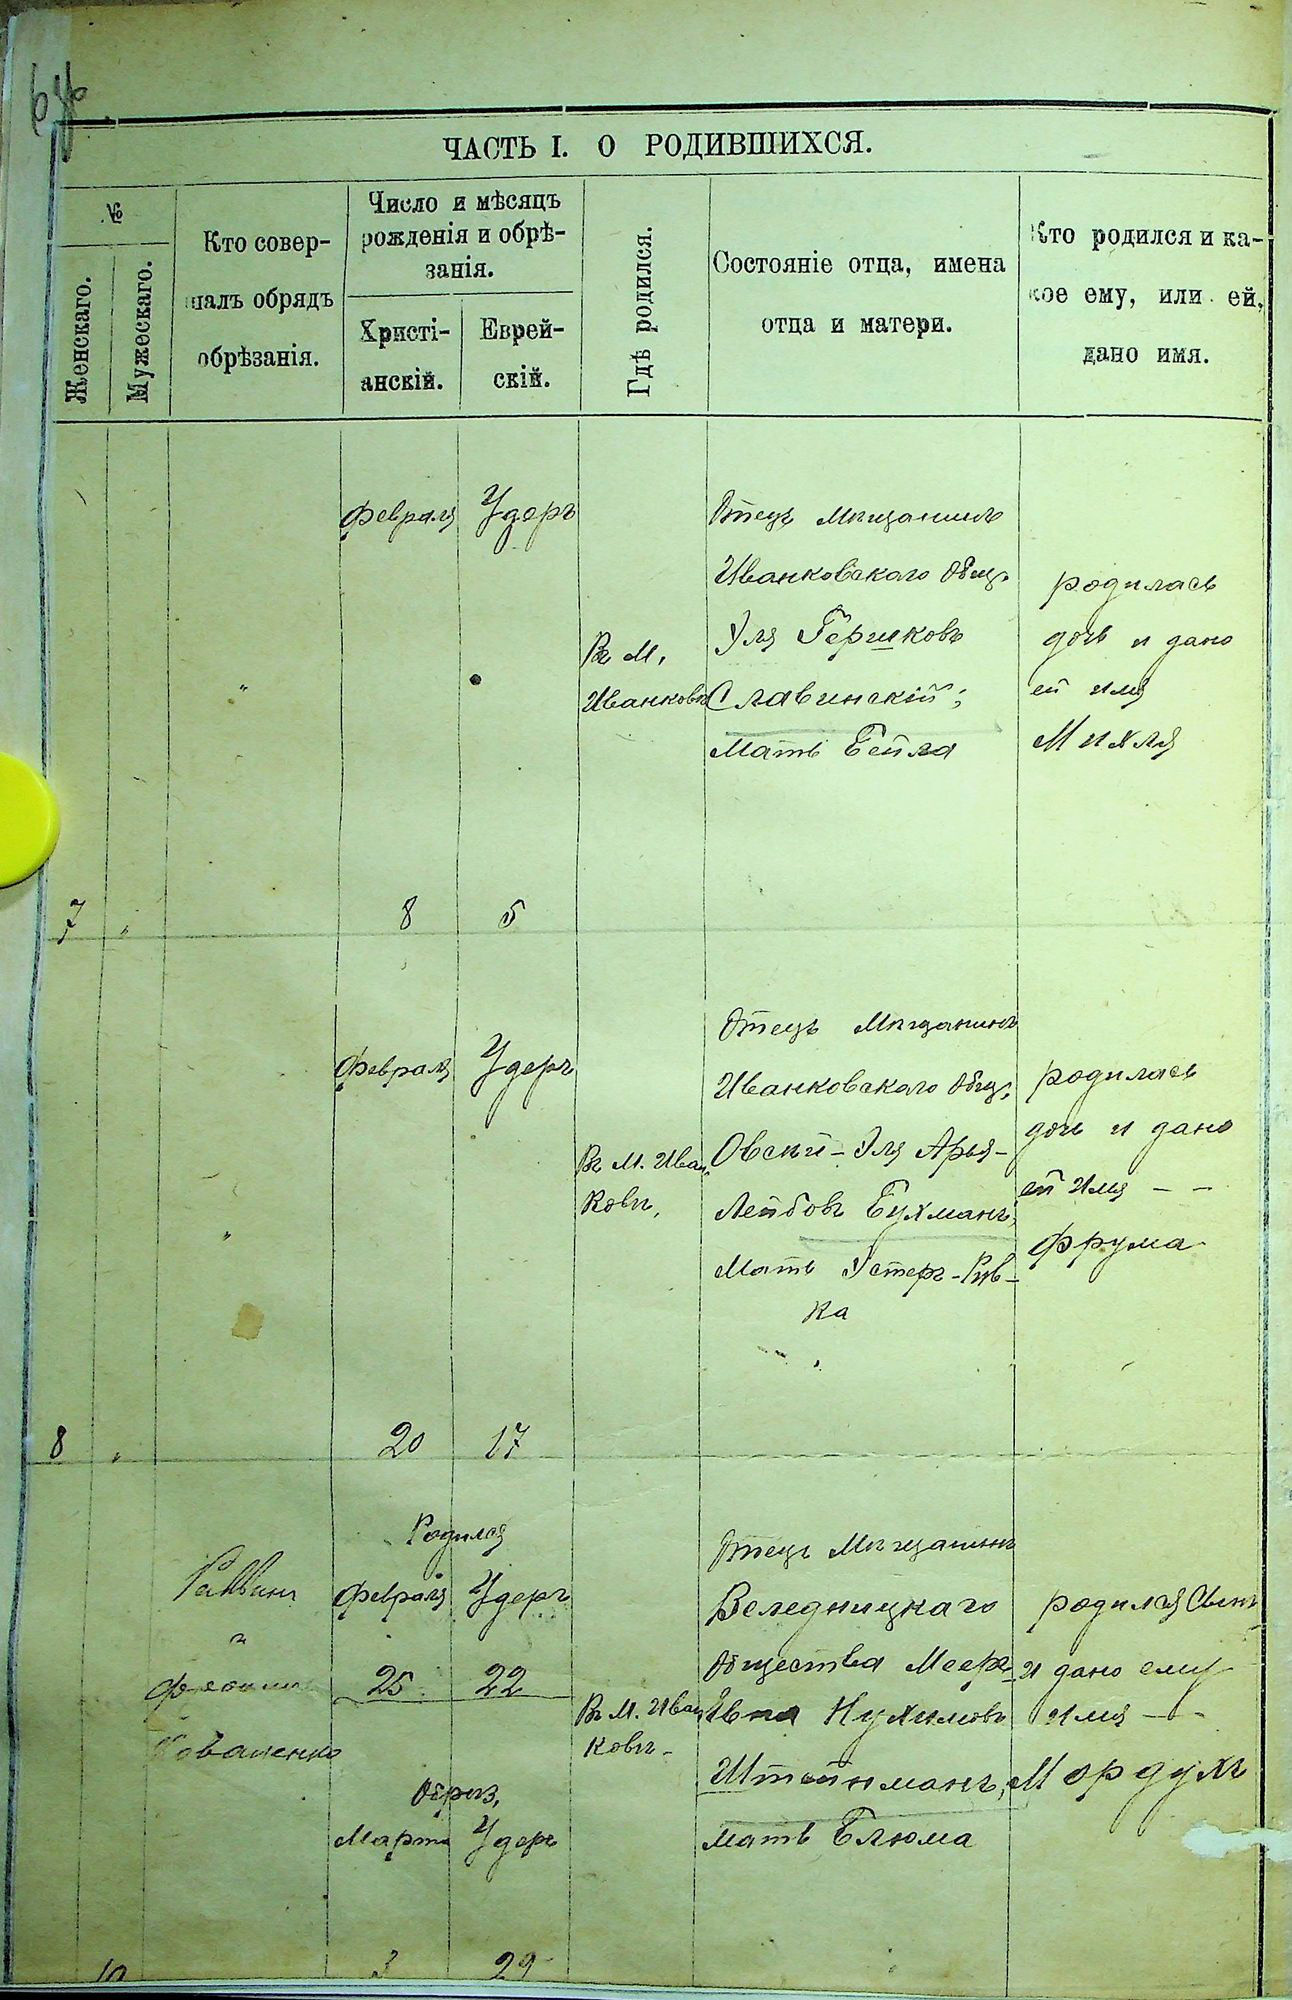 ЧАСТЬ I. О РОДИВШИХСЯ.
№
Женскаго.
Мужескаго.
Кто совер-
шалъ обрядъ
обрѣзанія.
Число и мѣсяцъ
рожденія и обрѣ-
занія.
Христі-
анскій.
Еврей-
скій.
Гдѣ родился.
Состояніе отца, имена
отца и матери.
Кто родился и ка-
кое ему, или ей,
дано имя.
Февраля
Удеръ
8
5
7
Въ М.
Иванковѣ
Отецъ Мѣщанинъ
Иванковскаго Общ.
Эля Гершковъ
Славинскій;
Мать Бейла
родилась
дочь и дано
ей имя
Михля
Февраля
Удеръ
20
17
8
Въ М. Иван
ковѣ,
Отецъ Мѣщанинъ
Иванковскаго Общ.
Овсій-Эля Арья-
Лейбовъ Бухманъ,
Мать Эстеръ-Рив-
ка
родилась
дочь и дано
ей имя - -
Фрума
Раввинъ
Коваленко
Родился
Февраля
Удеръ
25
22
Обрѣз.
Марта
Удеръ
3
29
10
Въ М. Иван
ковѣ-
Отецъ Мѣщанинъ
Веледницкаго
Общества Меер-
Нухимовъ
Штейнманъ,
мать Блюма
родился Сынъ
и дано ему
имя - -
Мордухъ